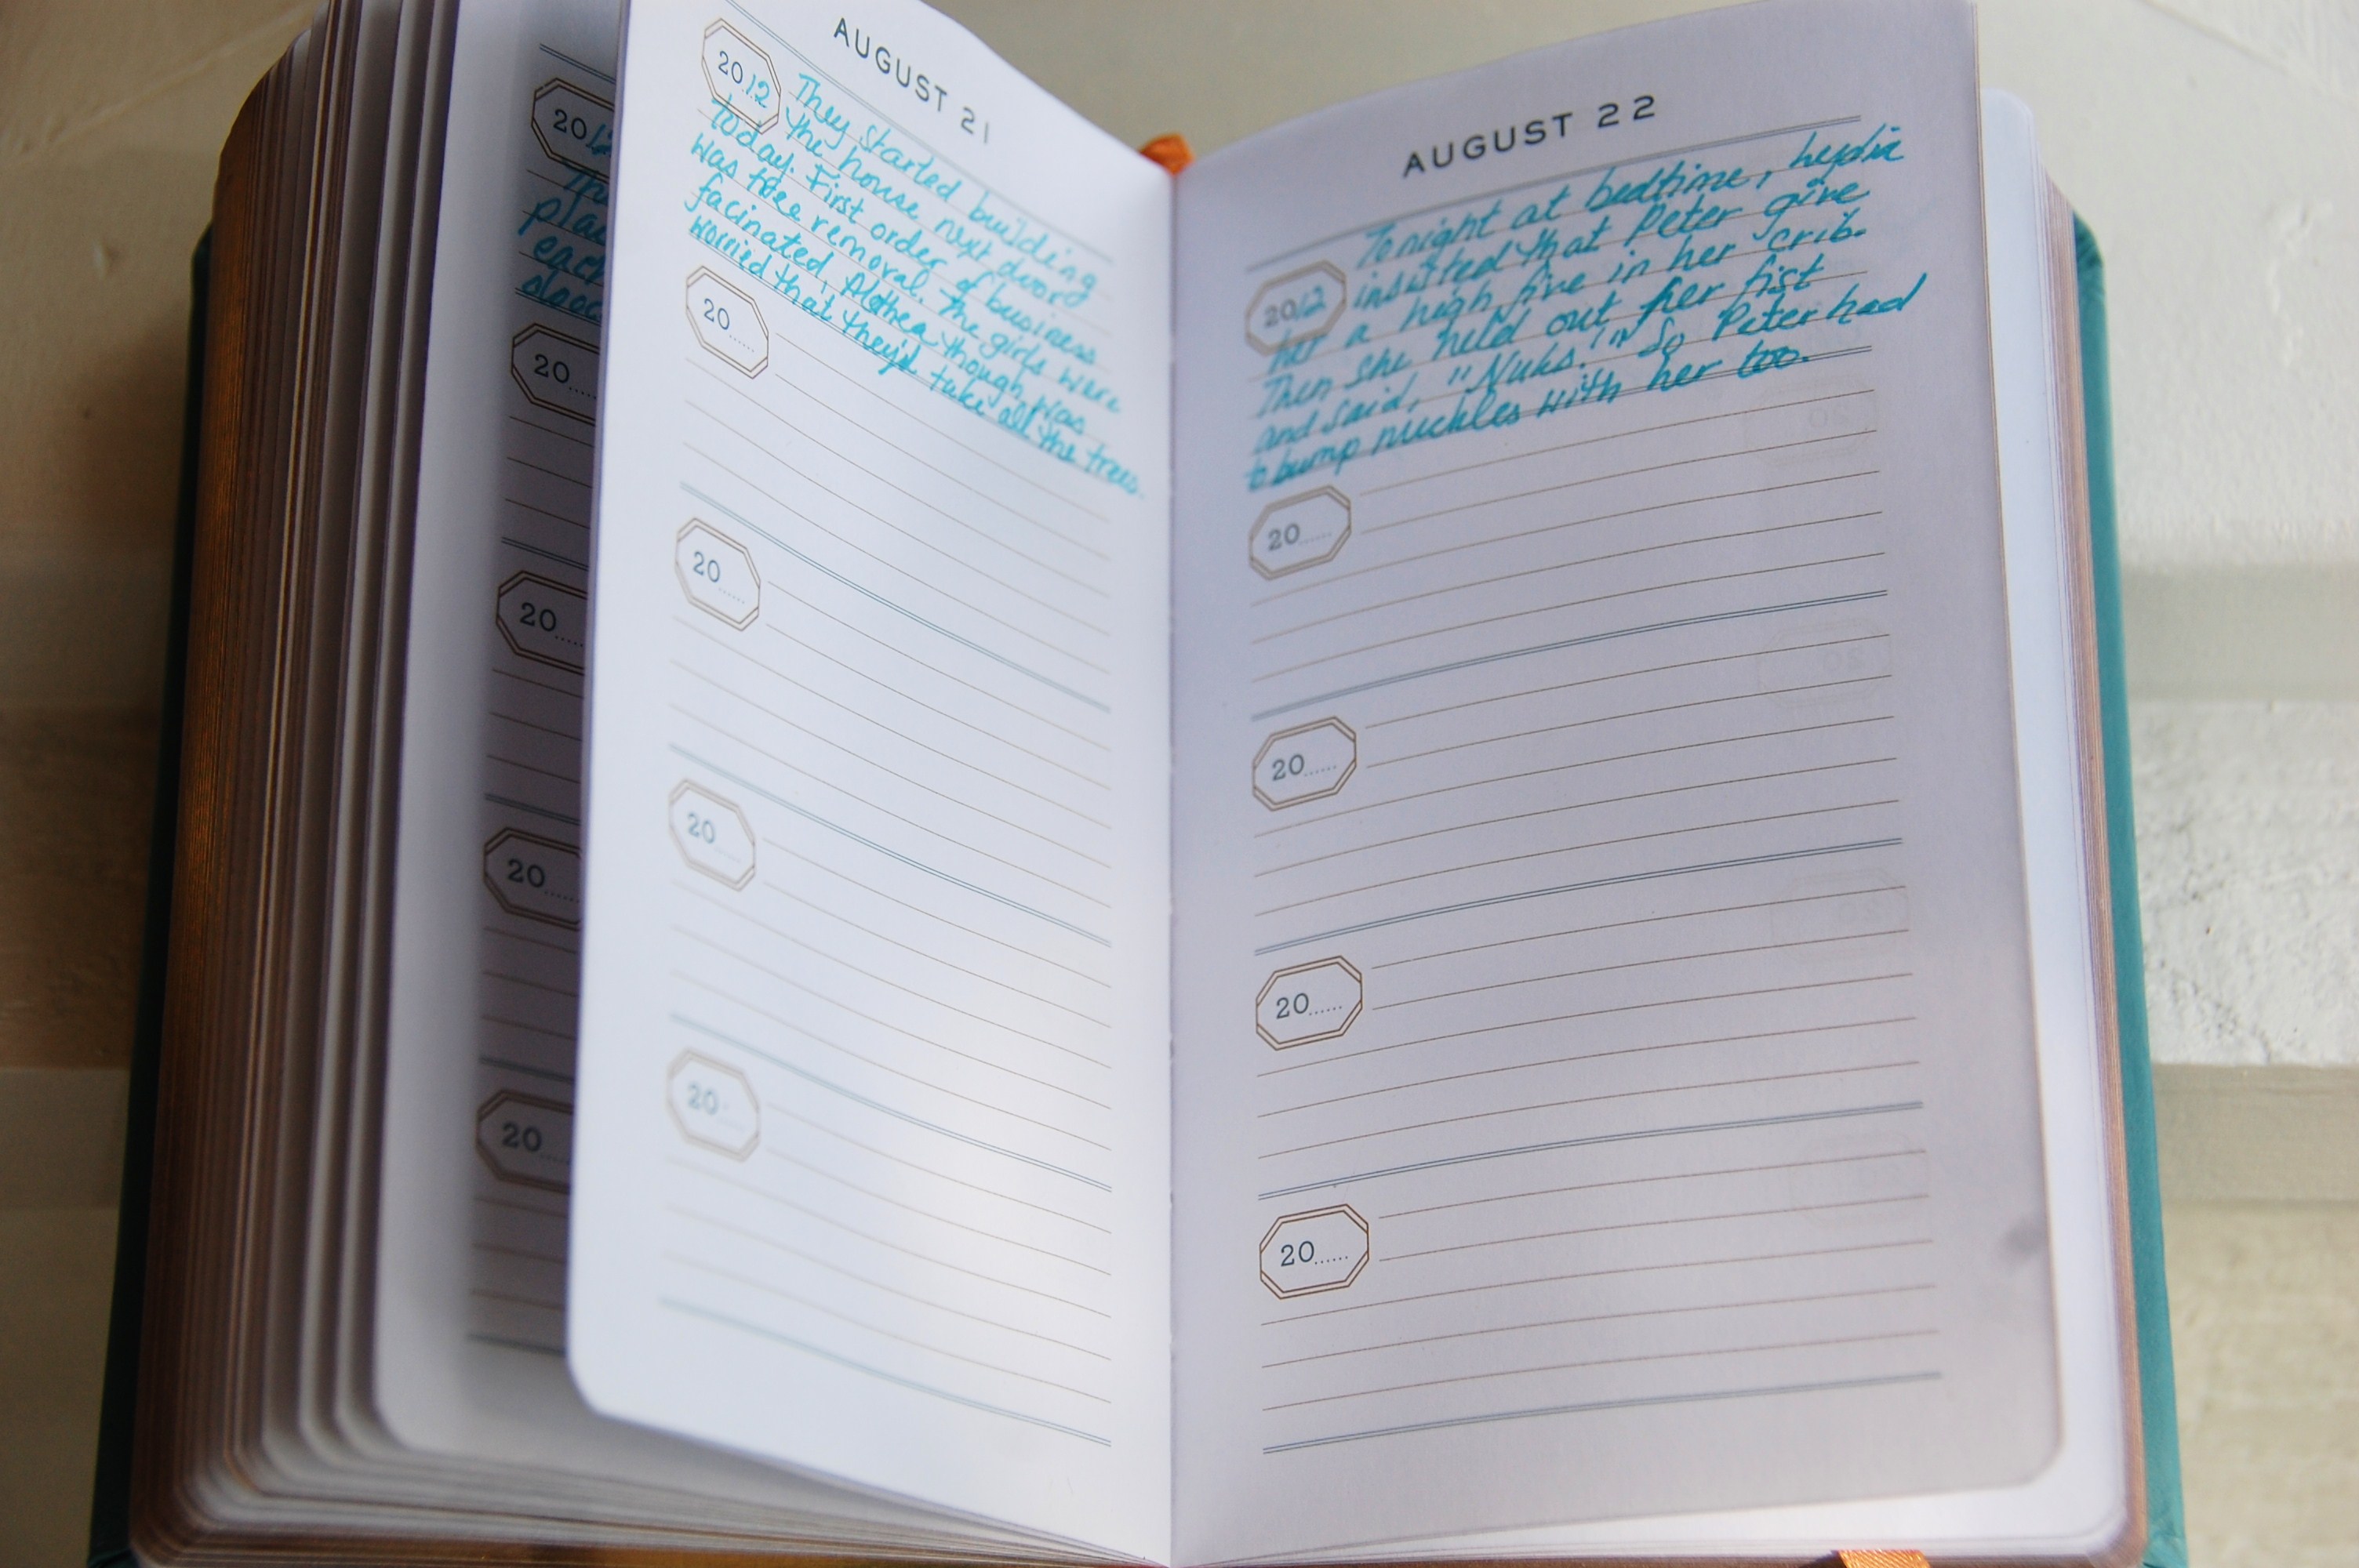 2012
Th
pla
each
20.....
20.....
20.....
20.....
AUGUST 21
2012 They started building
the house next door
today. First order of business
was tree removal. The girls were
facinated, though, was
worried that they'd take all the trees.
20......
20......
20
20
AUGUST 22
Tonight at bedtime, Lydia
2012 insisted that Peter give
her a high five in her crib.
Then she held out her fist
and said, "Nuks!" So Peter had
to bump nuckles with her too.
20......
20......
20......
20......